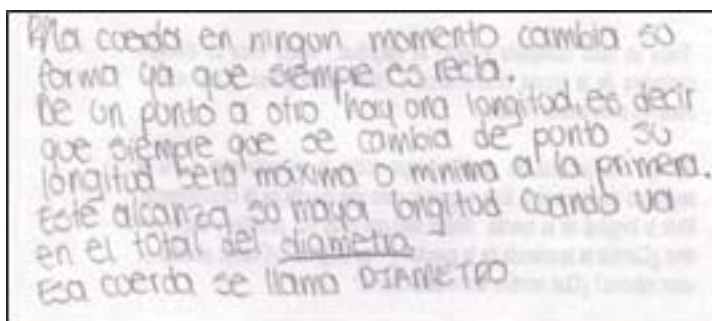 R/ la cuerda en ningun momento cambia su
forma ya que siempre es recta.
De un punto a otro hay una longitud, es decir
que siempre que se cambia de punto su
longitud sera maxima o minima a la primera.
Este alcanza su mayor longitud cuando va
en el total del diametro.
Esa cuerda se llama DIAMETRO